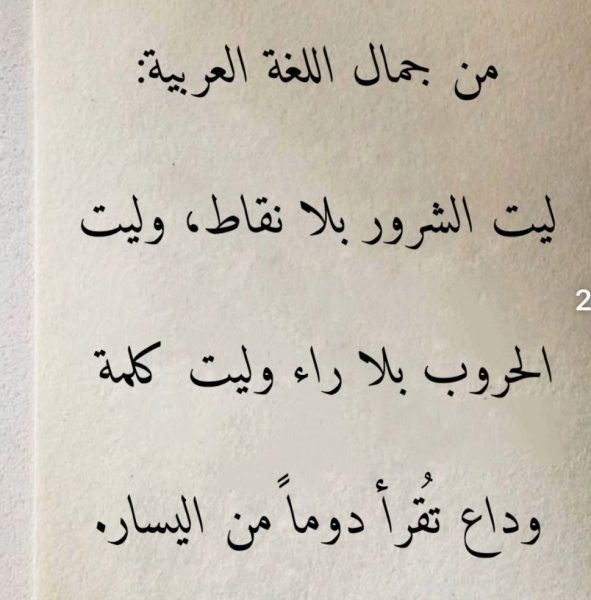 من جمال اللغة العربية:
ليت الشرور بلا نقاط، وليت
2
الحروب بلا راء وليت كلمة
وداع تُقرأ دوماً من اليسار.